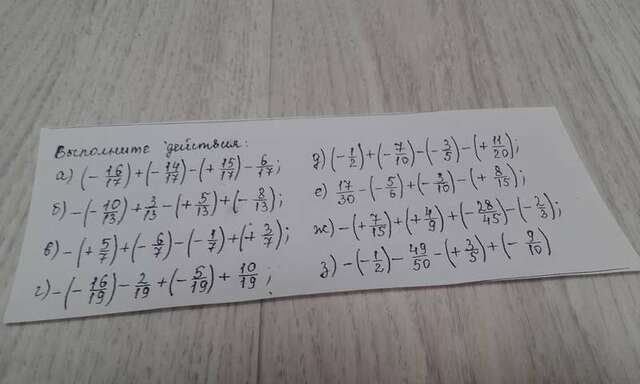 Выполните действия:
а) (-16/17)+(-14/17)-(+15/17)-6/17;
б) -(-10/13)+2/13-(+5/13)+(-8/13);
в) -(+5/7)+(-6/7)-(-1/7)+(+3/7);
г) -(-16/19)-2/19+(-5/19)+10/19;
д) (-1/2)+(-7/10)-(-3/5)-(+11/20);
е) 17/30-(-5/6)+(-3/10)-(+8/15);
ж) -(+7/15)+(+4/9)+(-28/45)-(-2/3);
з) -(-1/2)-49/50-(+3/5)+(-9/10)